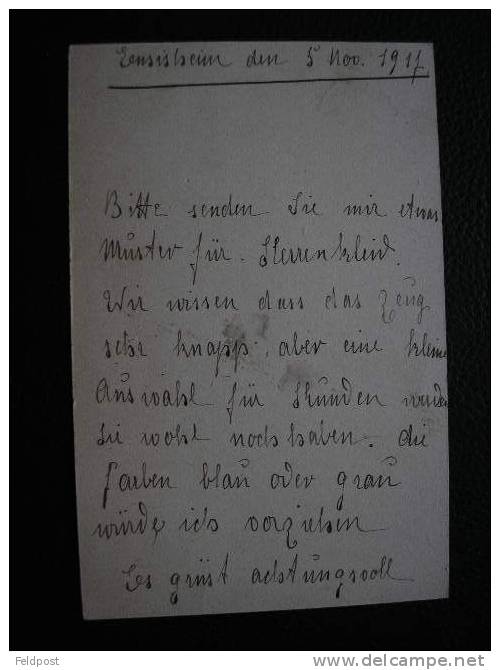 Ensisheim den 5 Nov. 1917
Bitte senden Sie mir etwas
Muster für Herrenkleid.
Wir wissen dass das Zeug
sehr knapp, aber eine kleine
Auswahl für Kunden werden
Sie wohl noch haben. die
farben blau oder grau
würde ich vorziehen
Es grüst achtungsvoll
Feldpost
www.delcampe.net